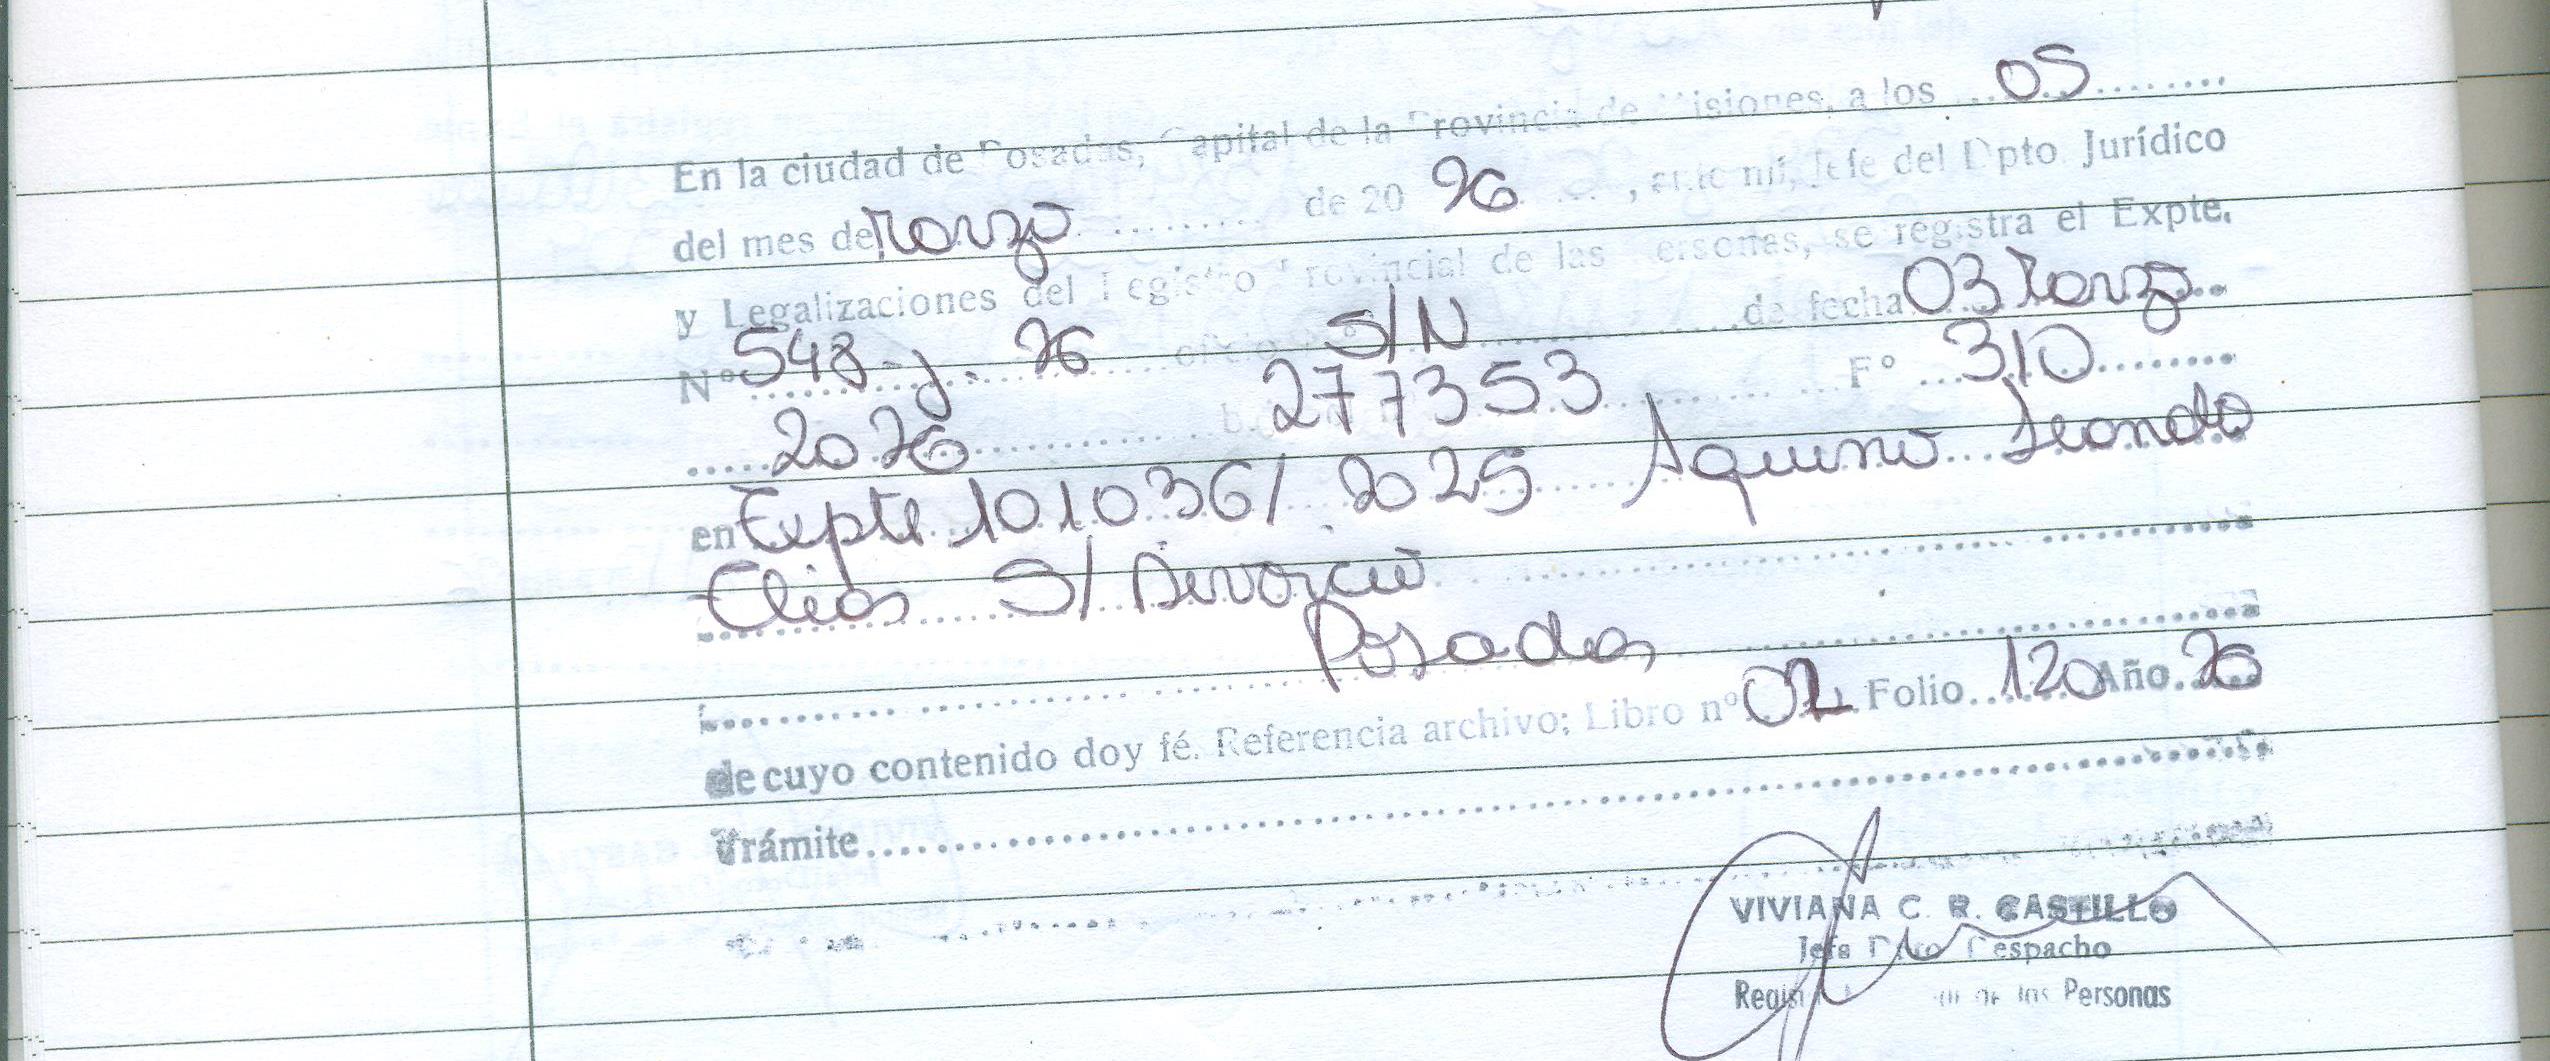 En la ciudad de Posadas, Capital de la Provincia de Misiones, a los 05
del mes de Marzo de 20 26, ante mí, Jefe del Dpto Jurídico
y Legalizaciones del Registro Provincial de las Personas, se registra el Expte.
Nº 548-J-26 oficio nº S/N de fecha 03 Marzo
2026 bajo 277353 Fº 310
en Expte 101036/2025 Aquino Leonardo
Elias S/ Divorcio
Posadas
de cuyo contenido doy fé. Referencia archivo: Libro nº 02 Folio 120 Año 26
Trámite
VIVIANA C. R. CASTILLO
Jefa Dpto. Despacho
de las Personas